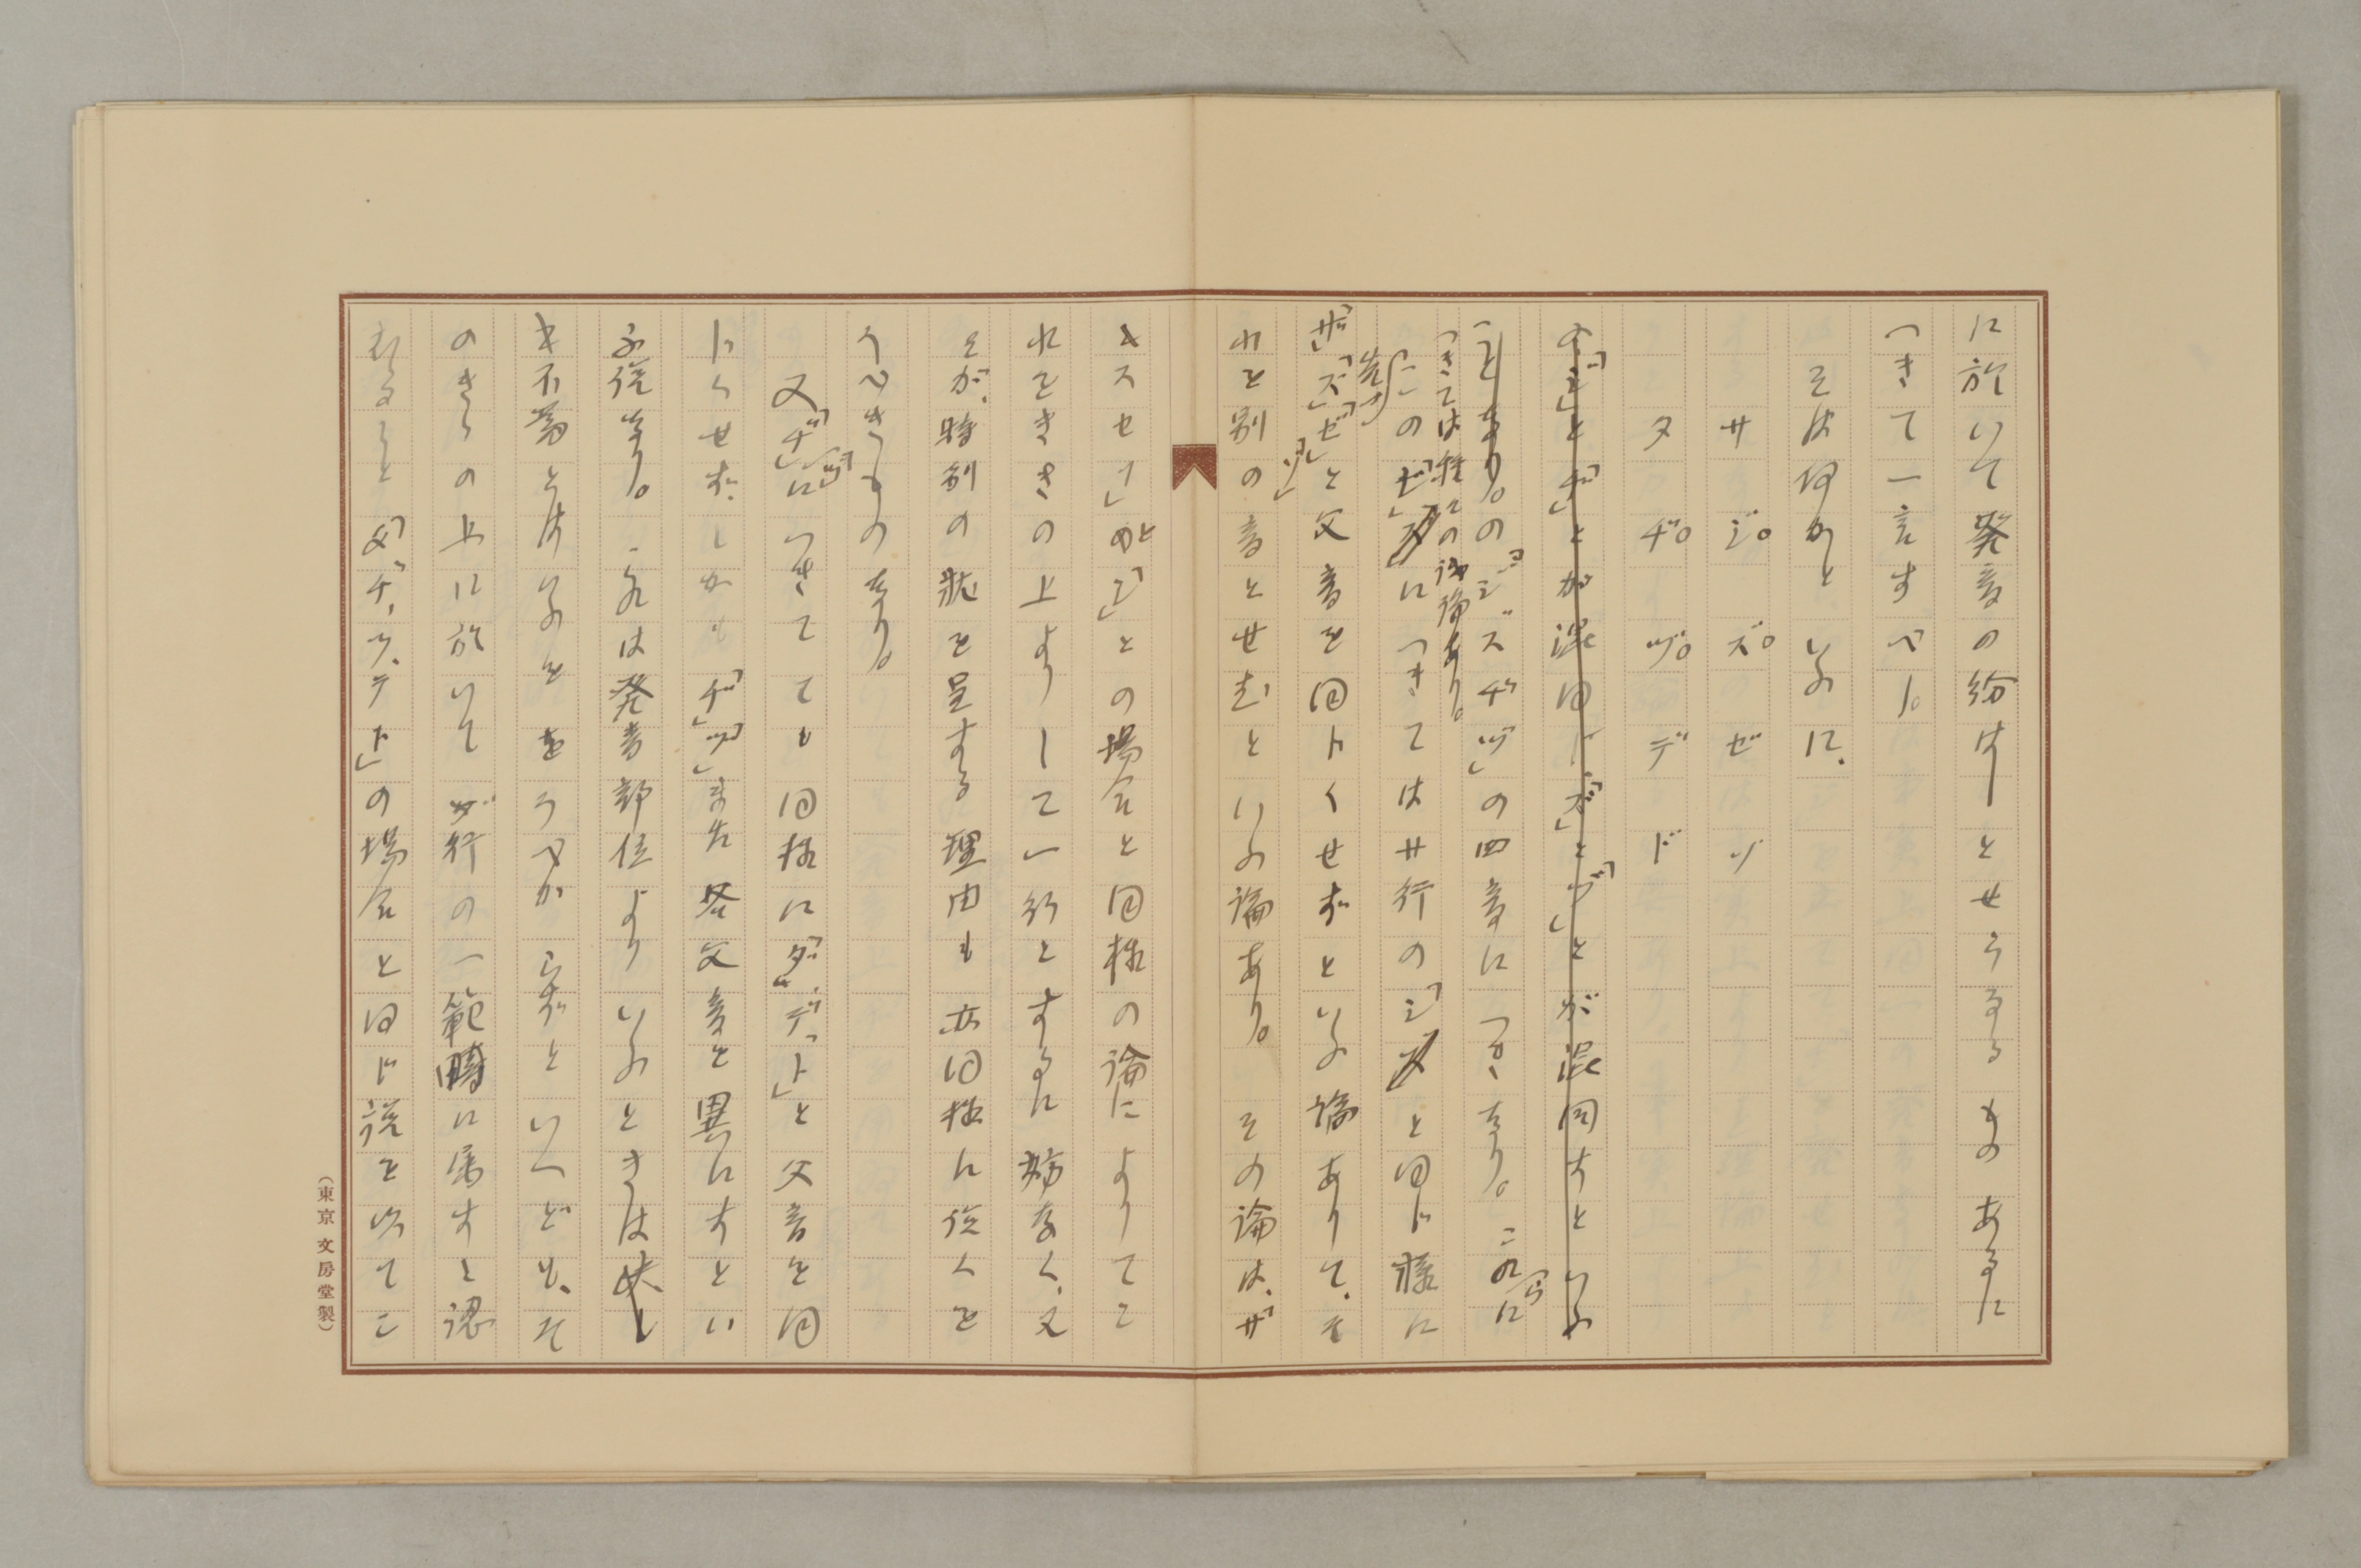 に於いて発音の紛はしとせらるるものあるに
つきて一言すべし。
そは何かといふに、
サ ジ。 ズ。 ゼ ゾ
タ ヂ。 ヅ。 デ ド
の「ジ」と「ヂ」とが混同し「ズ」と「ヅ」とが混同すといふ
ことあり。の「ジズヂヅ」の四音につきなり。これらに
つきては種々の議論あり。
先づ
この「ゼ」につきてはサ行の「シ」と同じ様に
「ザ」「ズ」「ゼ」「ゾ」と父音を同じくせずといふ論ありて、そ
れを別の音とせむといふ論あり。その論は、「サ
スセソ」と「シ」との場合と同様の論によりてこ
れをききの上よりして一行とするに妨なく、又
そが特別の状を呈する理由も亦同様に説くを
うべきものなり。
又「ヂ」「ヅ」につきても同様に「ダ、デ、ド」と父音を同
じくせず、しかも「ヂ」「ヅ」また各父音を異にすとい
ふ説なり。これは発音部位よりいふときは失し
き不当とはいふをうべからずといへども、そ
のきらの上に於いてダ行の一範疇に属すと認
むること「タ、チ、ツ、テ、ト」の場合と同じ説を以てこ
(東京 文房堂製)